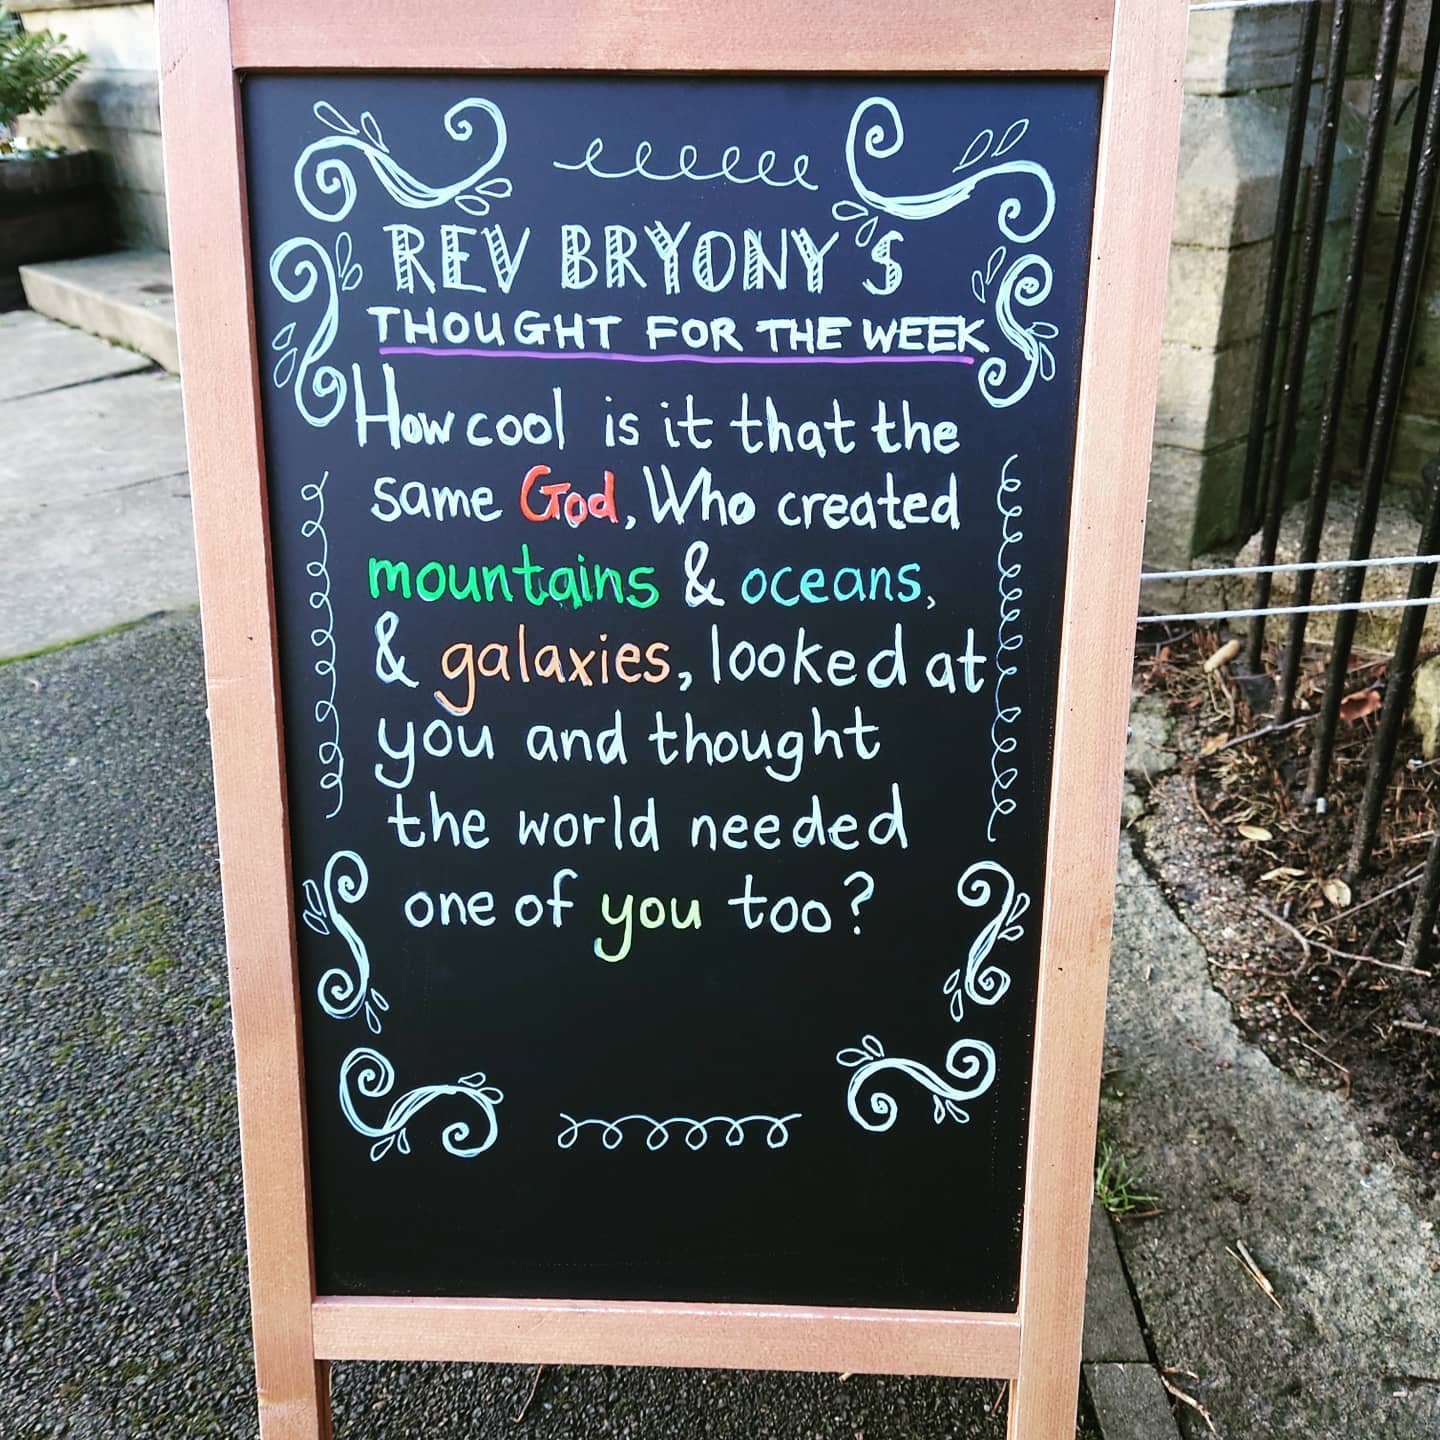 REV BRYONY'S
THOUGHT FOR THE WEEK
How cool is it that the
same God, Who created
mountains & oceans,
& galaxies, looked at
you and thought
the world needed
one of you too?